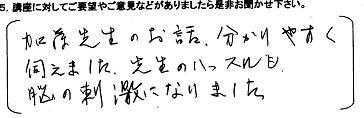 5. 講座に対してご要望やご意見などがありましたら是非お聞かせ下さい。
加藤先生のお話、分かりやすく
伺えました。先生のハッスルも
脳の刺激になりました